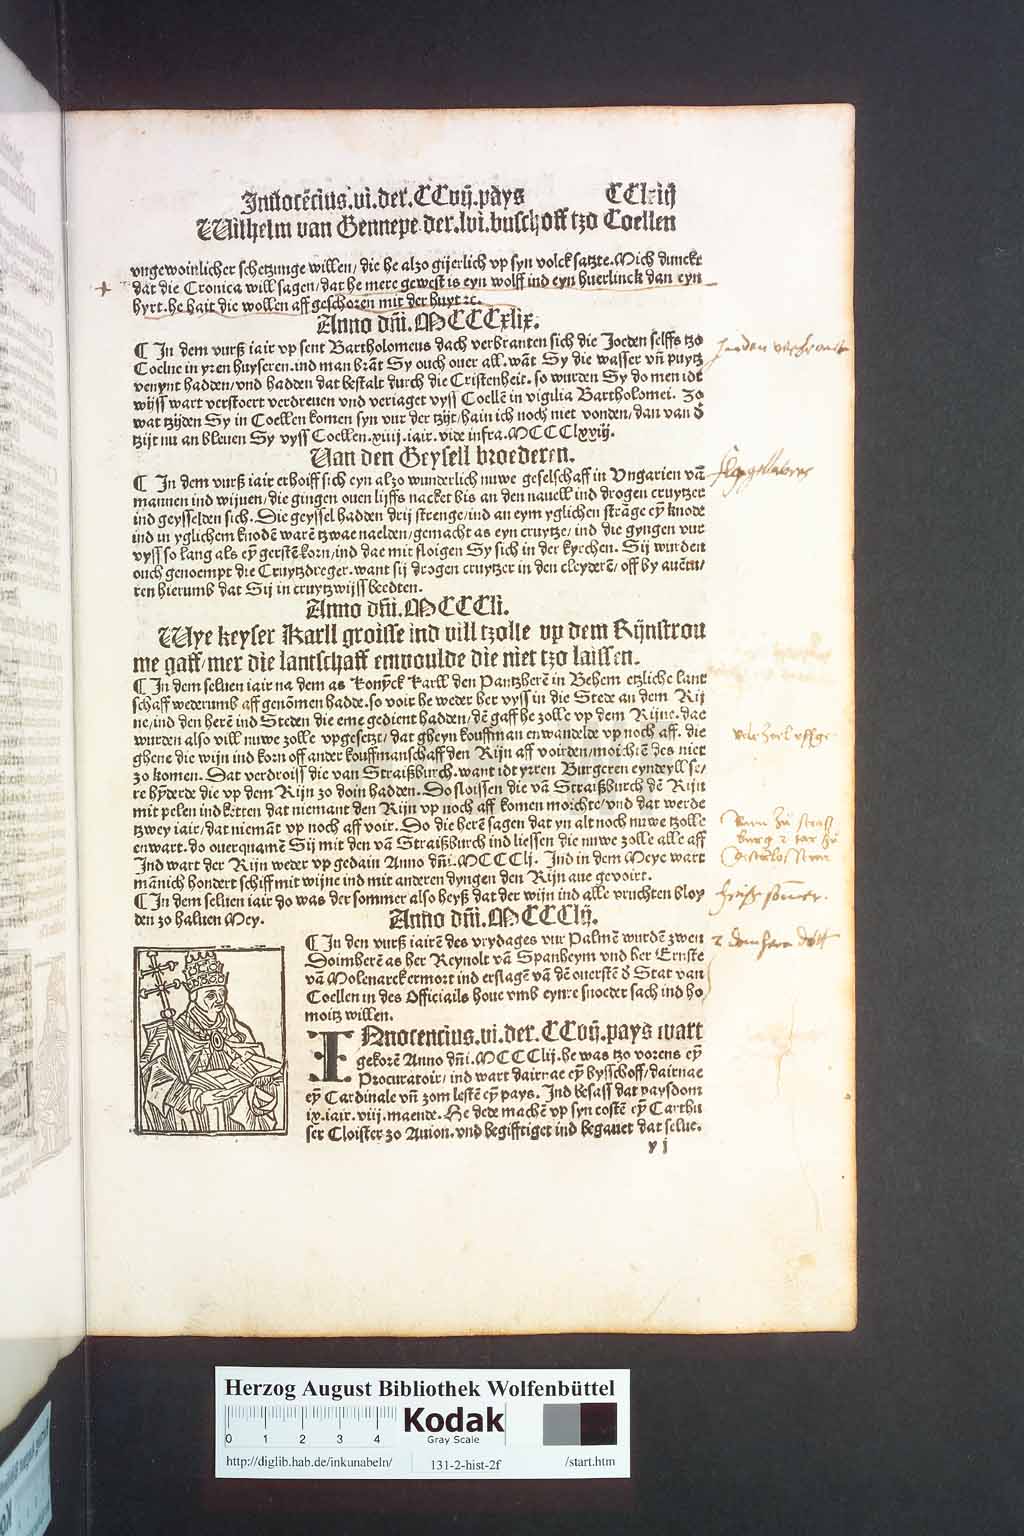 Innocēcius.vi.der.CCvij.pays CClxiij
Wilhelm van Gennepe der.lvi.buschoff tzo Coellen
vngewoinlicher schetzunge willen/ die he also gijerlich vp syn volck satzte.Mich dunckt
dat die Cronica will sagen/dat he mere gewest is eyn wolff ind eyn huerlinck dan eyn
hyrt.he hait die wollen aff geschoren mit der huyt ⁊c.
Anno dñi.MCCCxlix.
¶ In dem vurß iair vp sent Bartholomeus dach verbranten sich die Joeden selffs tzo
Coelne in yren huyseren.ind man brāt Sy ouch ouer all.wāt Sy die wasser vñ puytz
venynt hadden/vnd hadden dat bestalt durch die Cristenheit. so wurden Sy do men idt
wijss wart verstoert verdreuen vnd veriaget vyss Coellē in vigilia Bartholomei. Zo
wat tzijden Sy in Coellen komen syn vur der tzijt/hain ich noch niet vonden/dan van d̄
tzijt nu an bleuen Sy vyss Coellen.xxiiij.iair.vide infra.MCCClxxiij.
Van den Geysell broederen.
¶ In dem vurß iair erhoiff sich eyn also wunderlich nuwe geselschaff in Vngarien vā
mannen ind wijuen/die gingen ouen lijffs nacket bis an den nauell ind drogen cruytzer
ind geysselden sich. Die geyssel hadden drij strenge/ind an eym yglichen strāge eȳ knode
ind in yglichem knodē warē tzwae naelden/gemacht as eyn cruytze/ ind die gyngen vur
vyss so lang als eȳ gerstē korn/ind dae mit sloigen Sy sich in der kyrchen. Sij wurden
ouch genoempt die Cruytzdreger.want sij drogen cruytzer in den cleyderē/ off by auētu/
ren hierumb dat Sij in cruytzwijss beedten.
Anno dñi.MCCCli.
Wye keyser Karll groisse ind vill tzolle vp dem Rijnstrou
me gaff/mer die lantschaff enwoulde die niet tzo laissen.
¶ In dem seluen iair na dem as Konyck Karll den Pantzherē in Behem etzliche lant
schaff wederumb aff genōmen hadde.so voir he weder her vyss in die Stede an dem Rij
ne/ind den herē ind Steden die eme gedient hadden/dē gaff he zolle vp dem Rijne.dae
wurden also vill nuwe zolle vpgesetzt/dat gheyn kouffman enwandelde vp noch aff. die
ghene die wijn ind korn off ander kouffmanschaff den Rijn aff voirden/moichtē des niet
zo komen. Dat verdroiss die van Straißburch.want idt yrren Burgeren eyndeyll se/
re hynderde die vp dem Rijn zo doin hadden. Do sloissen die vā Straißburch dē Rijn
mit pelen ind ketten dat niemant den Rijn vp noch aff komen moichte/vnd dat werde
tzwey iair/dat niemāt vp noch aff voir. Do die herē sagen dat yn alt noch nuwe tzolle
enwart.do ouerquamē Sij mit den vā Straißburch ind liessen die nuwe zolle alle aff
Ind wart der Rijn weder vp gedain Anno dñi.MCCCLij. Ind in dem Meye wart
mānich hondert schiff mit wijne ind mit anderen dyngen den Rijn aue gevoirt.
¶ In dem seluen iair do was der sommer also heyß dat der wijn ind alle vruchten bloy
den zo haluen Mey.
Anno dñi.MCCCLij.
¶ In den vurß iairē des vrydages vur Palmē wurdē zwen
Doimherē as her Reynolt vā Spanheym vnd her Ernste
vā Molenarck ermort ind erslagē vā dē ouerstē d̄ Stat van
Coellen in des Officiails houe vmb eynre snoeder sach ind ho
moitz willen.
INnocencius.vi.der.CCvij.pays wart
gekorē Anno dñi.MCCCLij.he was tzo vorens eȳ
Procuratoir/ ind wart dairnae eȳ bysschoff/dairnae
eȳ Cardinale vñ zom lestē eȳ pays. Ind besass dat paysdom
ix.iair.viij.maende. He dede machē vp syn costē eȳ Carthu
ser Cloister zo Auion.vnd begifftiget ind begauet dat selue.
y j
heiß sommer.
Herzog August Bibliothek Wolfenbüttel
0 1 2 3 4
Kodak
Gray Scale
http://diglib.hab.de/inkunabeln/ 131-2-hist-2f /start.htm